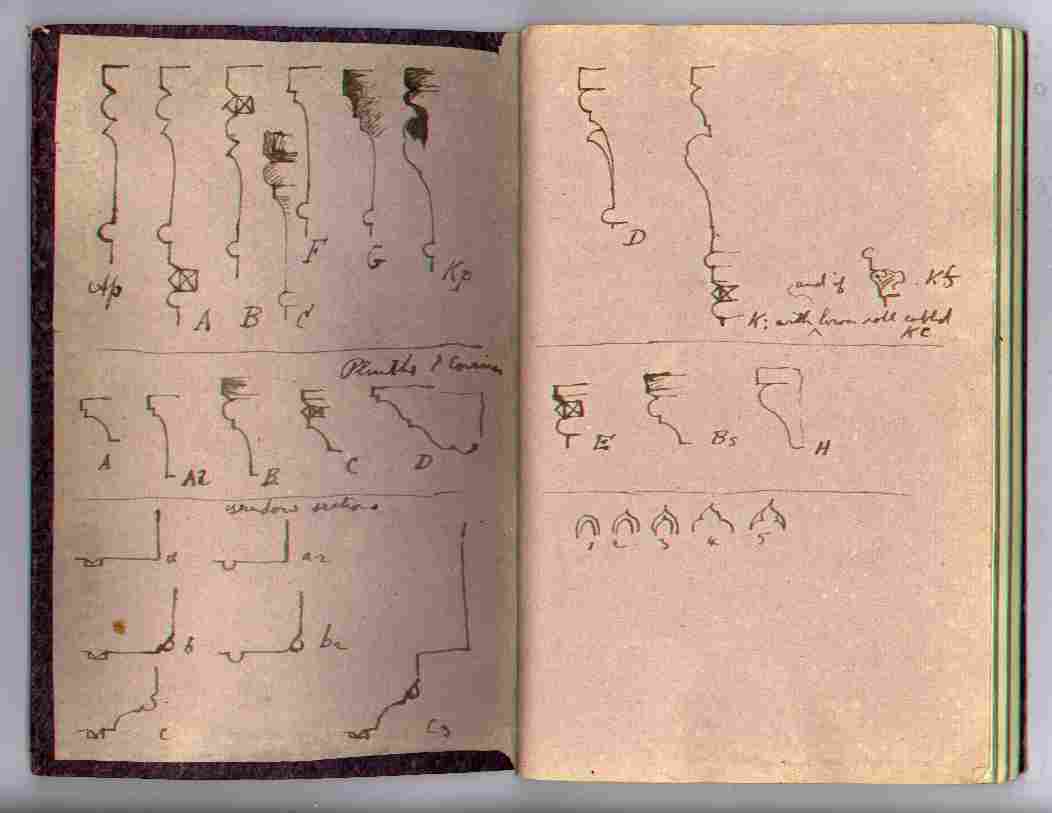 F
G
Kp
Ap
A
B
C
Plinths & Cornices
A
A2
B
C
D
window sections
a
a2
b
b2
c
C3
D
and if
Kf
K; with lower roll cabled
KC
E
Bs
H
1 2 3 4 5